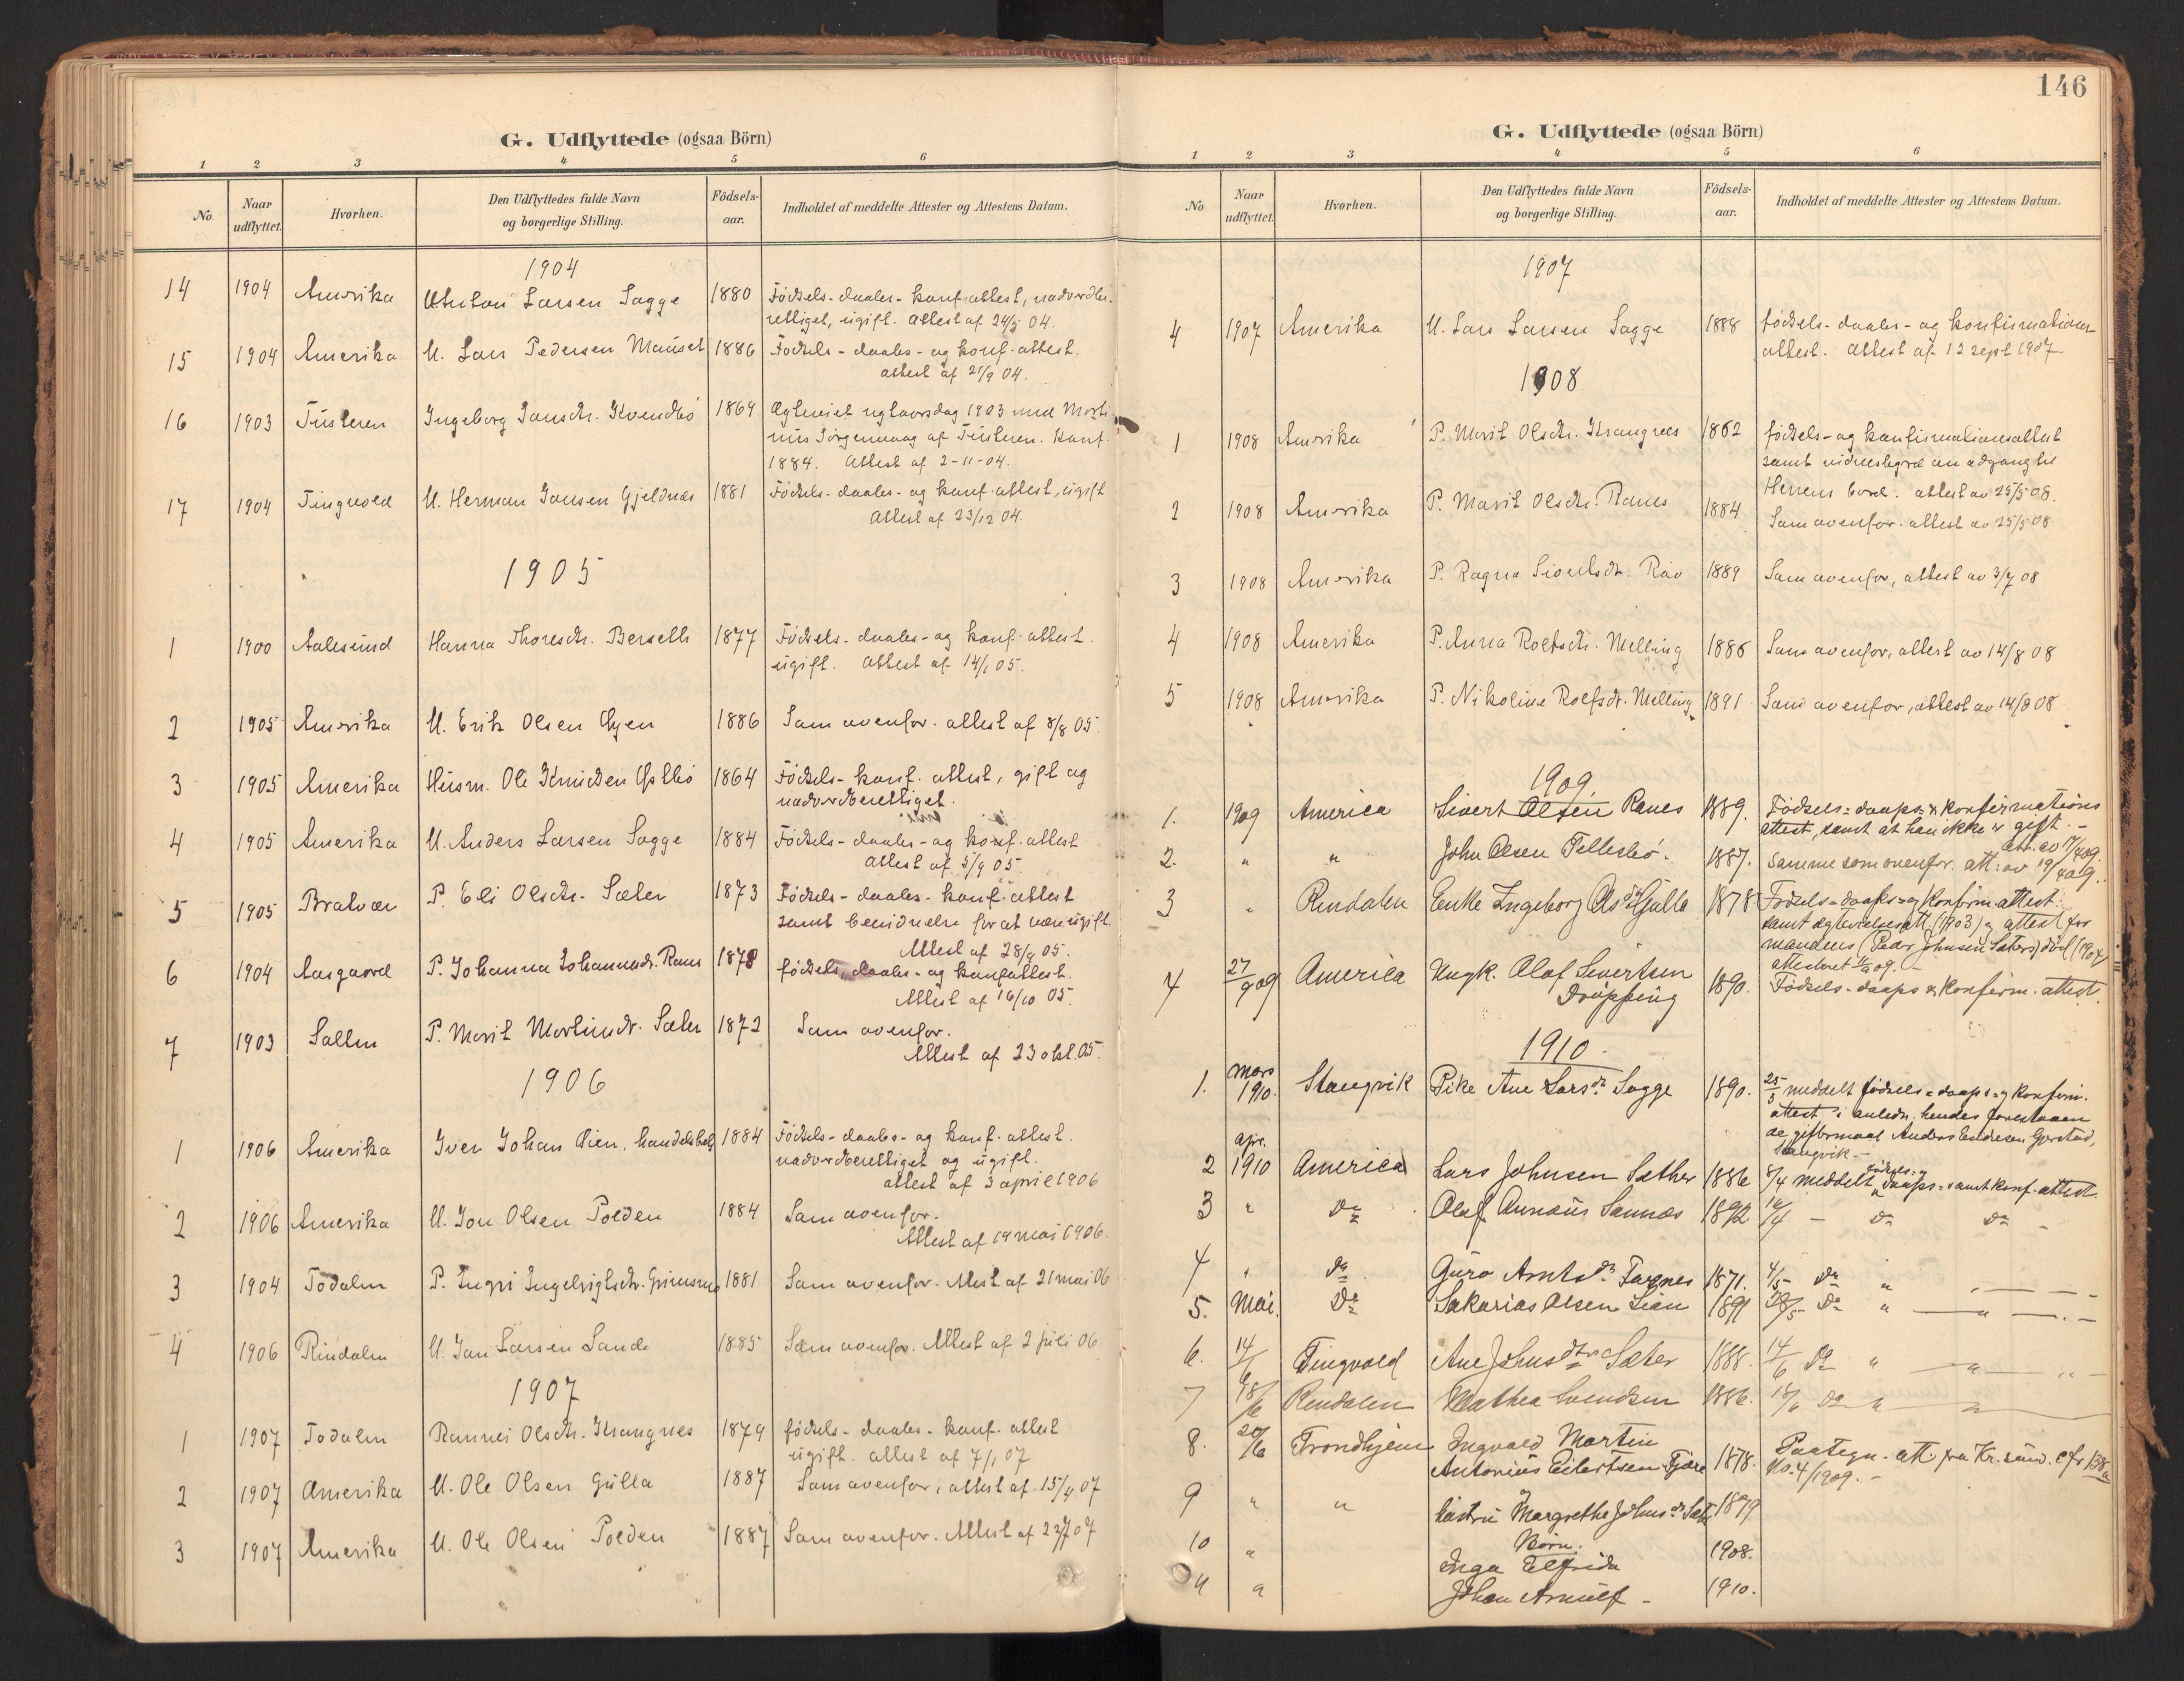 G. Udflyttede (ogsaa Börn)
1 2 3 4 5 6
No Naar udflyttet. Hvorhen. Den Udflyttedes fulde Navn og borgerlige Stilling. Födsels-aar. Indholdet af meddelte Attester og Attestens Datum.
1904
14 1904 Amerika Larsen Sagge 1880 Födsels- daabs- konf. attest,
ugift. Attest af 24/5 04.
15 1904 Amerika U. Lars Pedersen Mauset 1886 Födsels- daabs- og konf. attest.
attest af 21/9 04.
16 1903 Tusteren Ingeborg Jonsdtr. Kvendbö 1869 Ægteviet 1903 med Morti-
nus Jörgenvaag af Tusteren. Konf.
1884. Attest af 2-11-04.
17 1904 Tingvold U. Herman Jonsen Gjeldnæs 1881 Födsels- daabs- og konf. attest, ugift
Attest af 23/12 04.
1905
1 1900 Aalesund Hanna Thoresdtr. Berseth 1877 Födsels- daabs- og konf. attest.
ugift. attest af 14/1 05.
2 1905 Amerika U. Erik Olsen 1886 Som ovenfor. attest af 8/8 05.
3 1905 Amerika Husm. Ole Knudsen 1864 Födsels- konf. attest, gift og
nadverdberettiget.
4 1905 Amerika U. Anders Larsen Sagge 1884 Födsels- daabs- og konf. attest
attest af 5/9 05.
5 1905 Bratvær P. Eli Olsdtr. Sæter 1873 Födsels- daabs- konf. attest
samt bevidnelse for at være ugift.
Attest af 28/9 05.
6 1904 Aasgaard P. Johanna Johannsdr. Ranes 1878 födsels, daabs- og konfattest.
Attest af 16/10 05.
7 1903 P. Marit Martinsdr. Sæter 1872 Som ovenfor.
Attest af 23 okt. 05.
1906
1 1906 Amerika Iver Johan Öien, handelsbetj. 1884 Födsels- daabs- og konf. attest.
nadverdberettiget og ugift.
attest af 3 april 1906
2 1906 Amerika U. Jon Olsen Polden 1884 Som ovenfor.
Attest af 19 mai 1906.
3 1904 Todalen P. Ingri Ingebrigtsdtr. 1881 Som ovenfor. Attest af 21 mai 06
4 1906 Rindalen U. Jon Larsen Sande 1885 Som ovenfor. Attest af 2 juli 06
1907
1 1907 Todalen Rannei Olsdtr. Krangnes 1879 födsels- daabs- konf. attest
ugift. attest af 7/1 07
2 1907 Amerika U. Ole Olsen Gulla 1887 Som ovenfor, attest af 15/4 07
3 1907 Amerika U. Ole Olsen Polden 1887 Som ovenfor. Attest af 07
146
G. Udflyttede (ogsaa Börn)
1 2 3 4 5 6
No Naar udflyttet. Hvorhen. Den Udflyttedes fulde Navn og borgerlige Stilling. Födsels-aar. Indholdet af meddelte Attester og Attestens Datum.
1907
4 1907 Amerika U. Lars Larsen Sagge 1888 födsels- daabs- og konfirmations-
attest. Attest af 12 sept 1907.
1908
1 1908 Amerika P. Marit Olsdtr. Krangnes 1862 födsels- og konfirmationsattest
samt om adgang til
Herrens bord. attest av 25/5 08.
2 1908 Amerika P. Marit Olsdtr. Ranes 1884 Som ovenfor. attest av 25/5 08
3 1908 Amerika P. Ragna Sivertsdr. 1889 Som ovenfor, attest av 3/7 08
4 1908 Amerika P. Anna Rolfsdtr. Melling 1886 Som ovenfor, attest av 14/8 08
5 1908 Amerika P. Nikoline Rolfsdtr. Melling 1891 Som ovenfor, attest av 14/8 08
1909.
1. 1909 America Sivert Olsen Ranes 1889. Födsels- daaps- & konfirmations
attest, samt at han ikke er gift. -
2. " " John Olsen Tellesbö. 1887. Samme som ovenfor. att. av 19/4 09.
3 " Rindalen Enke Ingeborg Olsdtr Gulla 1878 Födsels- daaps- og konfirm. attest.
samt (1903) og attest for
mandens (Peder Johnsen Sæters) död (1904)
4 27/9 09 America Ungk. Olaf Sivertsen
Dröpping 1890. Födsels- daaps & konfirm. attest.
1910.
1. mars 1910. Stangvik Pike Ane Larsdr Sagge 1890. 25/3 meddelt födsels- daaps- og konfirm.
attest i anledn. hendes forestaaen
de giftermaal Anders Endresen
Stangvik. -
2 apr. 1910 America Lars Johnsen Sæther 1886 8/4 meddelt födsels- og daaps- samt konf. attest.
3 " Do Olaf Annæus Sannes 1892 16/4 - Do Do -
4 " Do Guro Arntsdr Farnes 1871. 4/5 Do "
5. Mai. Do Sakarias Olsen Lien 1891 28/5 Do " "
6. 14/6 Tingvold Ane Johnsdtr Sæter 1888. 14/6 Do " "
7 18/6 Rindalen Mathea Svendsen 1886. 18/6 Do " "
8. 20/6 Trondhjem Ingvald Martin
Antonius Eilertsen Fjære 1878. Paategn. att. fra Kr.sund. cfr 138a
No. 4/1909. -
9 " " Hustru Margrethe Johnsdr Sæter 1879
Börn.
10 " Inga Elfrida 1908.
11 " Johan Arnulf - 1910.